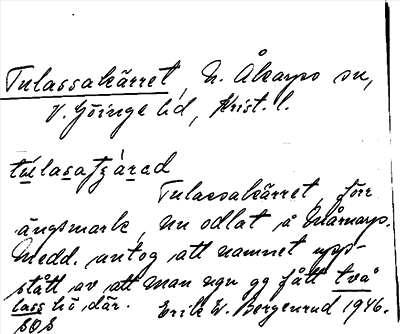 Tulassakärret, N. Åkarps sn,
V. Göinge hd, Krist. l.
túlasatʃàrad
Tulassakärret, förr
ängsmark, nu odlat å Mårnarp.
Medd. antog att namnet upp-
stått av att man ngn gg fått två
lass hö där. Erik W. Bergenrud 1946.